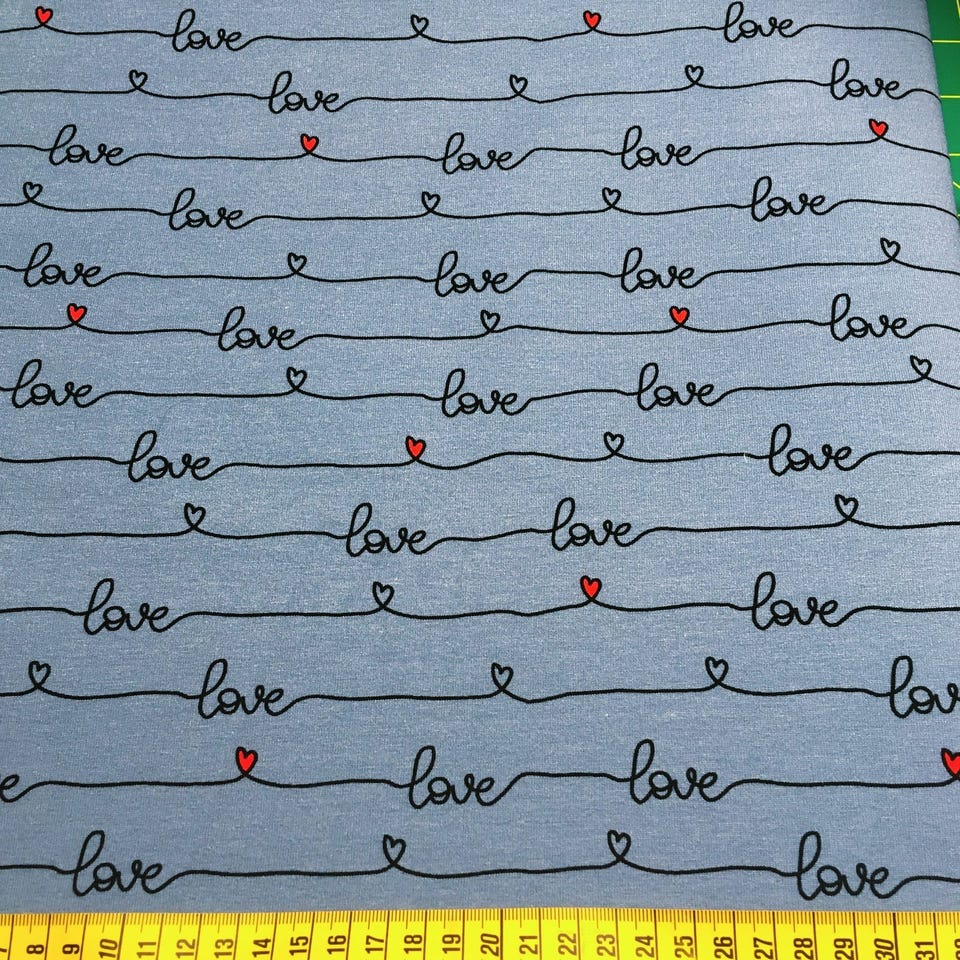 love love
love love
love love love
love love
love love love
love love
love love love
love love
love love
love love
love lov
e love love
love love
8 9 10 11 12 13 14 15 16 17 18 19 20 21 22 23 24 25 26 27 28 29 30 31